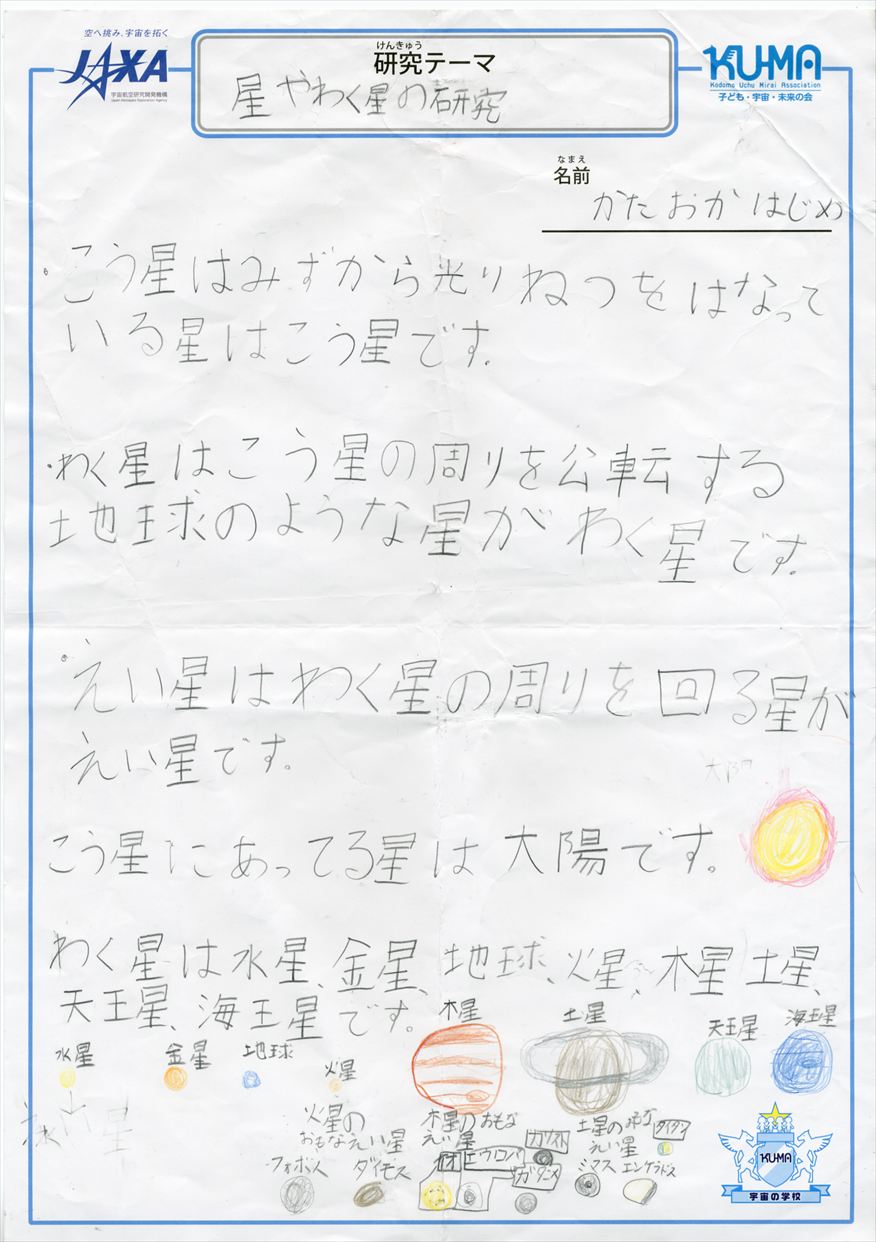 空へ挑み、宇宙を拓く
JAXA
宇宙航空研究開発機構
Japan Aerospace Exploration Agency
けんきゅう
研究テーマ
星やわく星の研究
KU-MA
Kodomo Uchu Mirai Association
子ども・宇宙・未来の会
なまえ
名前
かたおかはじめ
こう星はみずから光りねつをはなって
いる星はこう星です。
・わく星はこう星の周りを公転する
地球のような星がわく星です。
えい星はわく星の周りを回る星が
えい星です。
こう星にあってる星は大陽です。
わく星は水星、金星、地球、火星、木星、土星、
天王星、海王星です。
木星
土星
天王星
海王星
水星
金星
地球
火星
火星の
おもなえい星
フォボス
ダイモス
木星のおもな
えい星
イオ
エウロパ
カリスト
ガニメ
土星のおもな
えい星
タイタン
ミマス
エンケラドス
KUMA
宇宙の学校